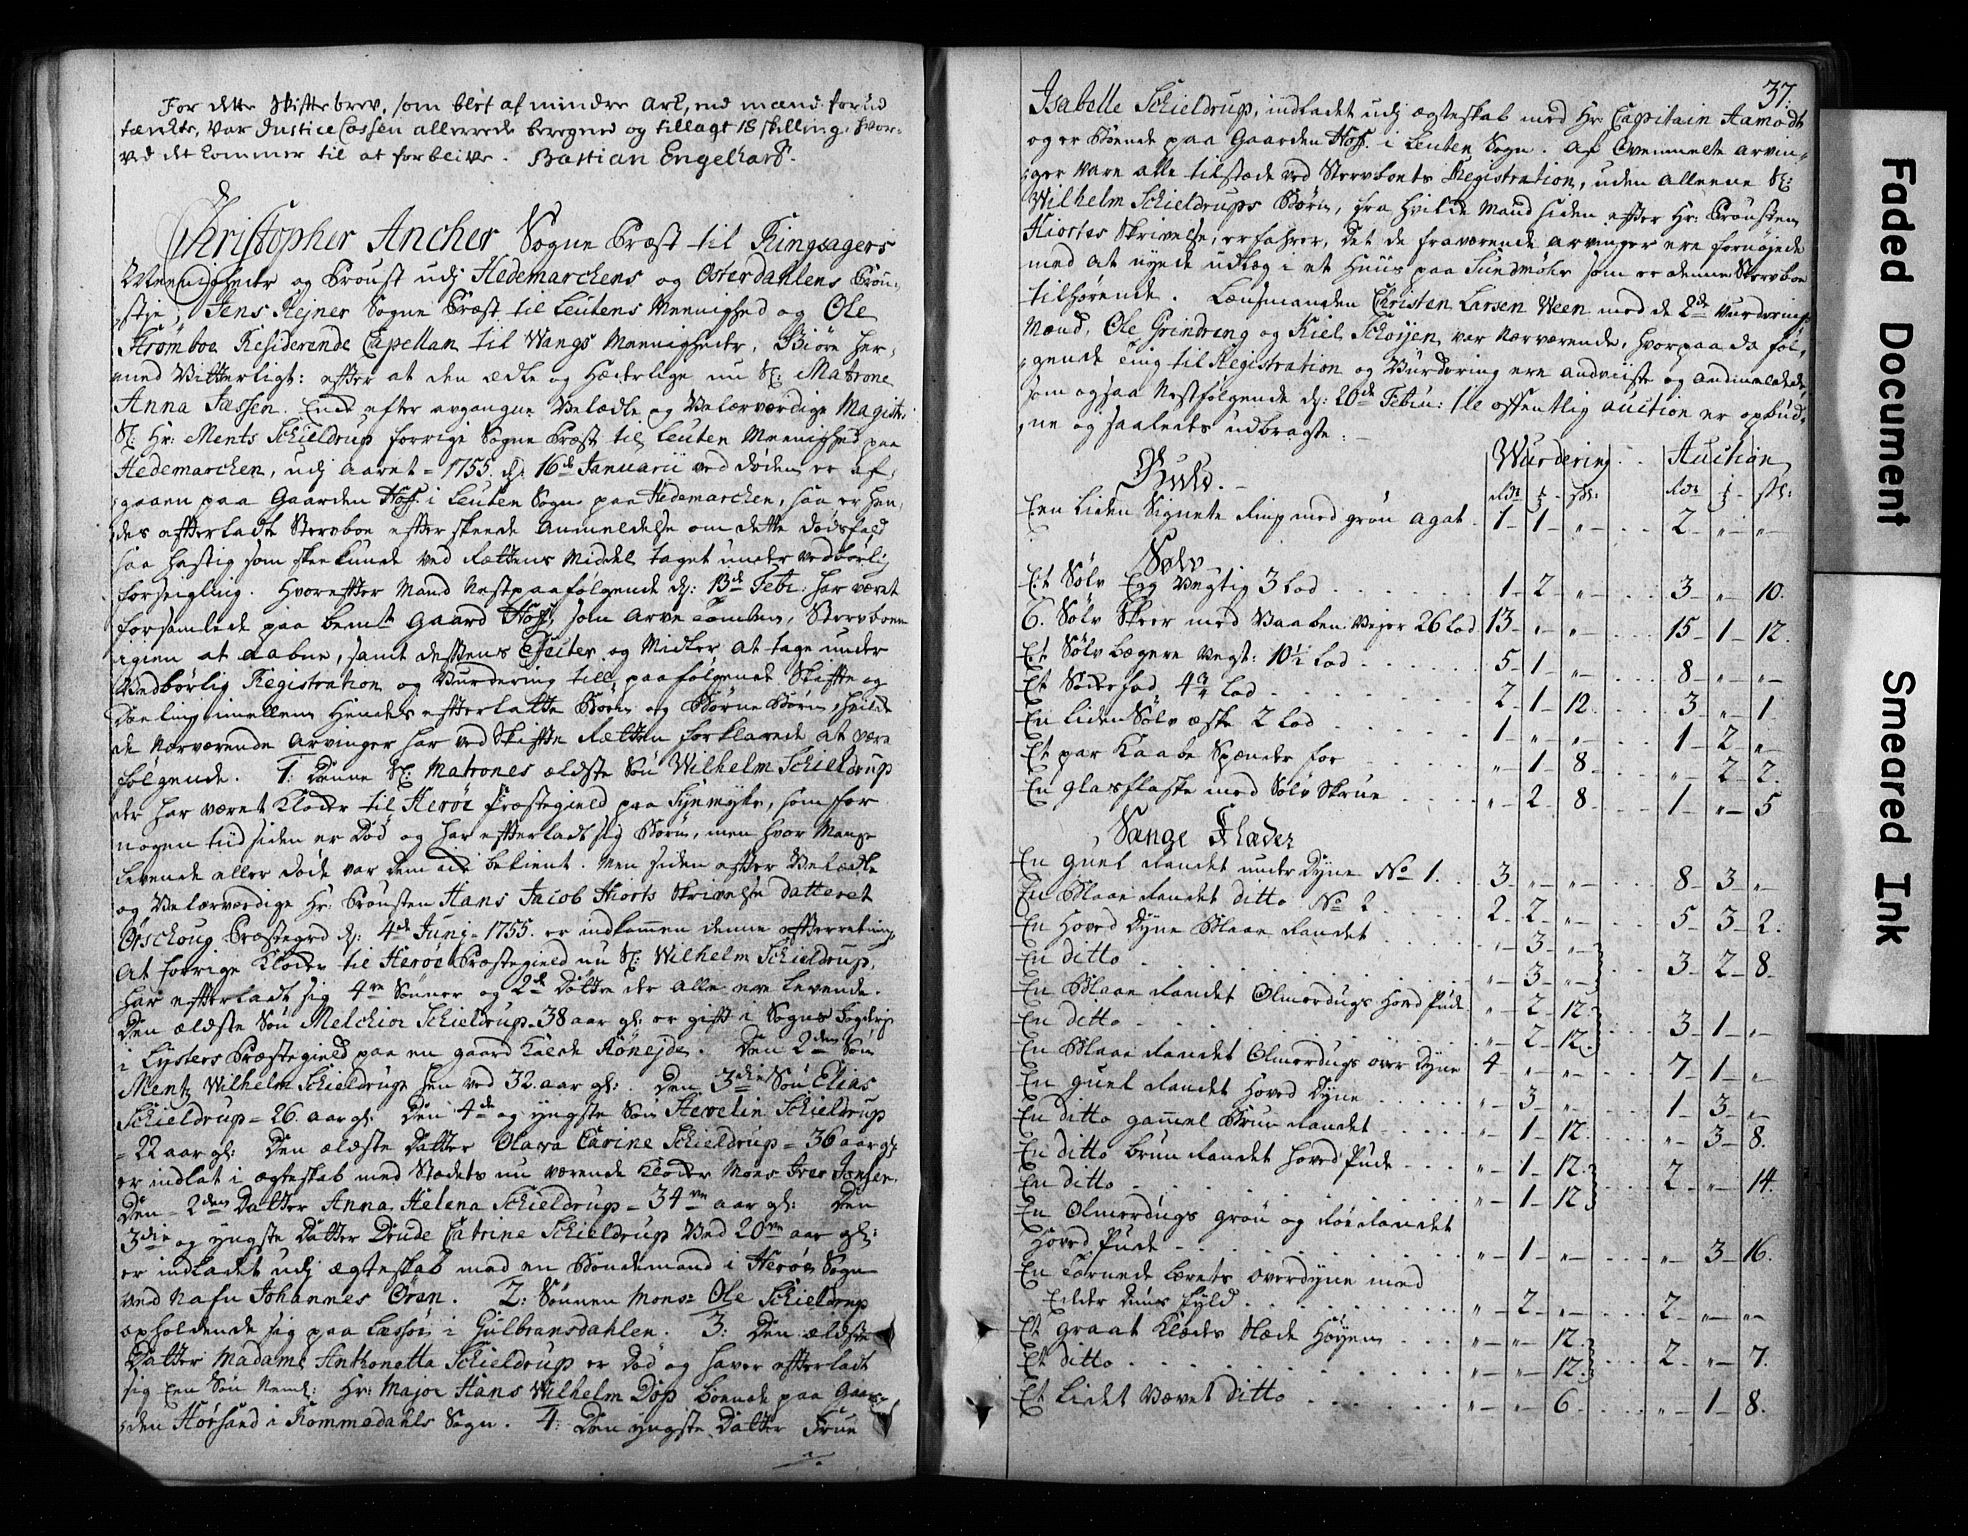 For dette Skiftebrev, som blef af mindre Ark, end mand forud
tænckte, var Justice Cassen allerrede beregnet og tillagt 18 skilling, hvor-
ved det kommer til at forblive. Bastian Engelhart.
Christopher Ancher Sogne Præst til Ringsagers
Meenigheder og Proust udj Hedemarchens og Osterdahlens Prou-
stje, Jens Rejner Sogne Præst til Leutens Meenighed og Ole
Strømboe Residerende Capellan til Wangs Meenigheder, Giøre her-
med Vitterligt: efter at den ædle og Hæderlige nu Sl: Matrone
Anna Jassen. Encke efter avgangne Velædle og Velærværdige Magister
Sl: Hr: Ments Schieldrup forrige Sogne Præst til Leuten Meenighed paa
Hedemarchen, udj Aaret = 1755. d: 16de Januarii ved døden er af-
gaaen paa Gaarden Hoff i Leuten Sogn paa Hedemarchen, saa er hen-
des efterladte Sterboe efter skeede Anmeldelse om dette dødsfald
saa hastig som skee kunde ved Rettens Middel taget under vedbørlig
forseigling. Hvorefter Mand Nestpaafølgende d: 13de Febr. har været
forsamlede paa bemte Gaard Hoff, som Arve Tomten, Sterboen
igien at aabne, samt dessens Effecter og Midler at tage under
Vedbørlig Registration og Vurdering till paafølgende Skifte og
Deeling imellem Hendes efterlatte Børn og Børne Børn, hvilke
de Nærværende Arvinger har ved Skifte Rætten forklarede at være
følgende. 1: Denne Sl: Matrones ældste Søn Wilhelm Schieldrup
der har været Klocker til Herøe Præstegield paa Synmyhr, som for
nogen tiid siden er Død og har efterladt sig Børn, men hvor Mange
levende eller døde var dem icke bekient. Men siden efter Velædle
og Velærværdige Hr: Prousten Hans Jacob Hiorts Skrivelse datteret
Ørschoug Præstegrd d: 4de Junj = 1755. er indkommen denne efterretning,
At forrige Klocker til Herøe Præstegield nu Sl: Wilhelm Schieldrup,
har efterladt sig 4re Sønner og 2de Døttre der alle ere levende.
Den ældste Søn Melchior Schieldrup = 38 aar gl: er gift i Sogns Fogderj
i Lysters Præstegield paa en gaard kalde Rønejde. Den 2den Søn
Mentz Wilhelm Schieldrup hen ved 32. aar gl:. Den 3die Søn Elias
Schieldrup = 26. aar gl: Den 4de og yngste Søn Stevelin Schieldrup
= 22 aar gl: Den ældste Datter Olava Carine Schieldrup = 36 aar gl:
er indlat i ægteskab med Stædets nu værende Klocker Mons Iver Jensen.
Den = 2den Datter Anna Helena Schieldrup = 34re aar gl: Den
3die og yngste Datter Drude Catrine Schieldrup Ved 20ve aar gl:
er indladet udj ægteskab med en Bondemand i Herøe Sogn
ved Nafn Johannes Ören. 2: Sønnen Mons: Ole Schieldrup
opholdende sig paa Læssøe i Gulbransdahlen. 3: Den ældste
Datter Madame Anthonetta Schieldrup er død og haver efterladt
sig Een Søn Neml: Hr: Major Hans Wilhelm Døp boende paa Gaar-
den Horsand i Rommedahls Sogn. 4: Den yngste Datter Frue
37.
Isabelle Schieldrup, indladet udj ægteskab med Hr Capitain Aamodt
og er Boende paa Gaarden Hoff i Leuten Sogn. Af Ovenmelte arvin-
ger vare alle tilstæde ved Sterboets Registration, uden alleene Sl:
Wilhelm Schieldrups Børn, fra hvilke Mand siden efter Hr: Prousten
Hiortes Skrivelse, erfahrer, det de fraværende arvinger ere fornøjede
med at nyde udlæg i et Huus paa Sundmøhr som er denne Sterboe
tilhørende. Lænsmanden Christen Larsen Ween med de 2de Vurderings
Mænd, Ole Grindreng og Kiel Schoyen var Nærværende, hvorpaa da föl-
gende ting til Registration og Vurdering ere andviiste og andmeldede,
som ogsaa Nestfølgende d: 20de Febru: ... offentlig auction er opbud-
ne og saaledes udbragte:
Wurdering. Auction
Guld.
Rdr ß sk: Rdr ß sk:
Een Liden Signete Ring med grøn Agat. 1 - 1 - „ 2 „ „
Sølv
Et Sølv Egg Vegtig 3 Lod 1 - 2 - „ 3 - „ - 10.
6. Sølv Skeer med Vaaben Vejer 26 Lod 13 - „ - „ 15 - 1 - 12.
Et Sølv bægere Vegt: 10½ Lod 5 - 1 - „ 8 - „ - „
Et Soderfad 4¾ Lod 2 - 1 - 12. 3 - „ - 1
En Liden Sølv æske 2 Lod 1 - „ - „ 1 - 2 - „
Et par Kaabe Spænder for „ - 1 - 8 „ - 2 - 2.
En glasflaske med Sølv Skrue „ - 2 - 8 1 - „ - 5
Senge Klæder
En gueel Randet under Dyne No 1. 3 - „ - „ 8 - 3 - „
En Blaae Randet ditto No 2 2 - 2 - „ 5 - 3 - 2.
En Hoved Dyne Blaae Randet „ - 3 - „
En ditto „ - 3 - „ 3 - 2 - 8
En Blaae Randet Olmerdugs Hoved Pude „ - 2 - 12.
En ditto „ - 2 - 12. 3 - 1 - „
En Blaae Randet Olmerdugs over Dyne 4 - „ - „ 7 - 1 - „
En gueel Randet Hoved Dyne „ - 3 - „ 1 - 3 - „
En ditto gammel Bruun Randet „ - 1 - 12. „ - 3 - 8.
En ditto bruun Randet Hoved Pude „ - 1 - 12.
En ditto „ - 1 - 12 2 - „ - 14.
En Olmerdugs grøn og Røe Randet
Hoved Pude „ - 1 - „ „ - 3 - 16.
En Tærnede Lærets overdyne med
Edder Duns fyld „ - 2 - „ 2 - „ - „
Et graat Klædes Slæde Høyen „ - „ - 12.
Et ditto „ - „ - 12. 2 - „ - 7.
Et Lidet Vævet ditto „ - „ - 6 „ - 1 - 8.
Faded Document
Smeared Ink